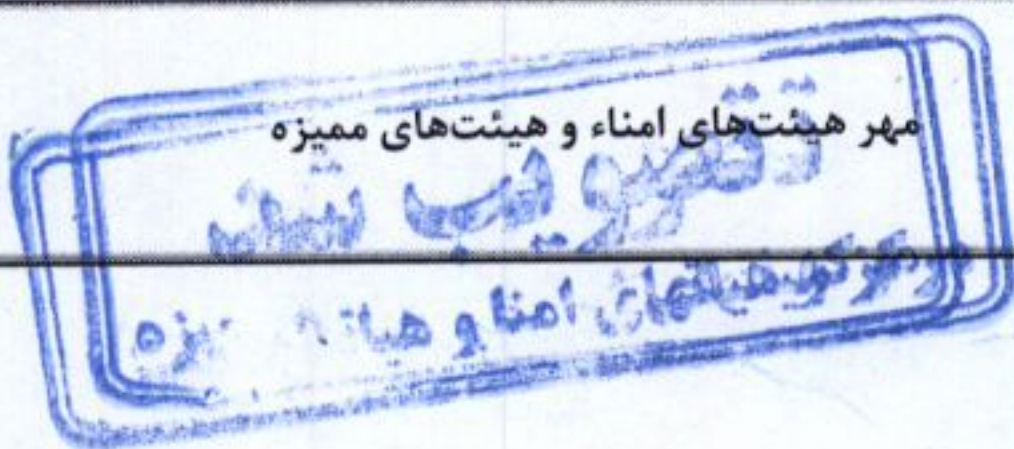 مهر هیئت‌های امناء و هیئت‌های ممیزه
تصویب شد
مرکز هیاتهای امنا و هیاتهای ممیزه